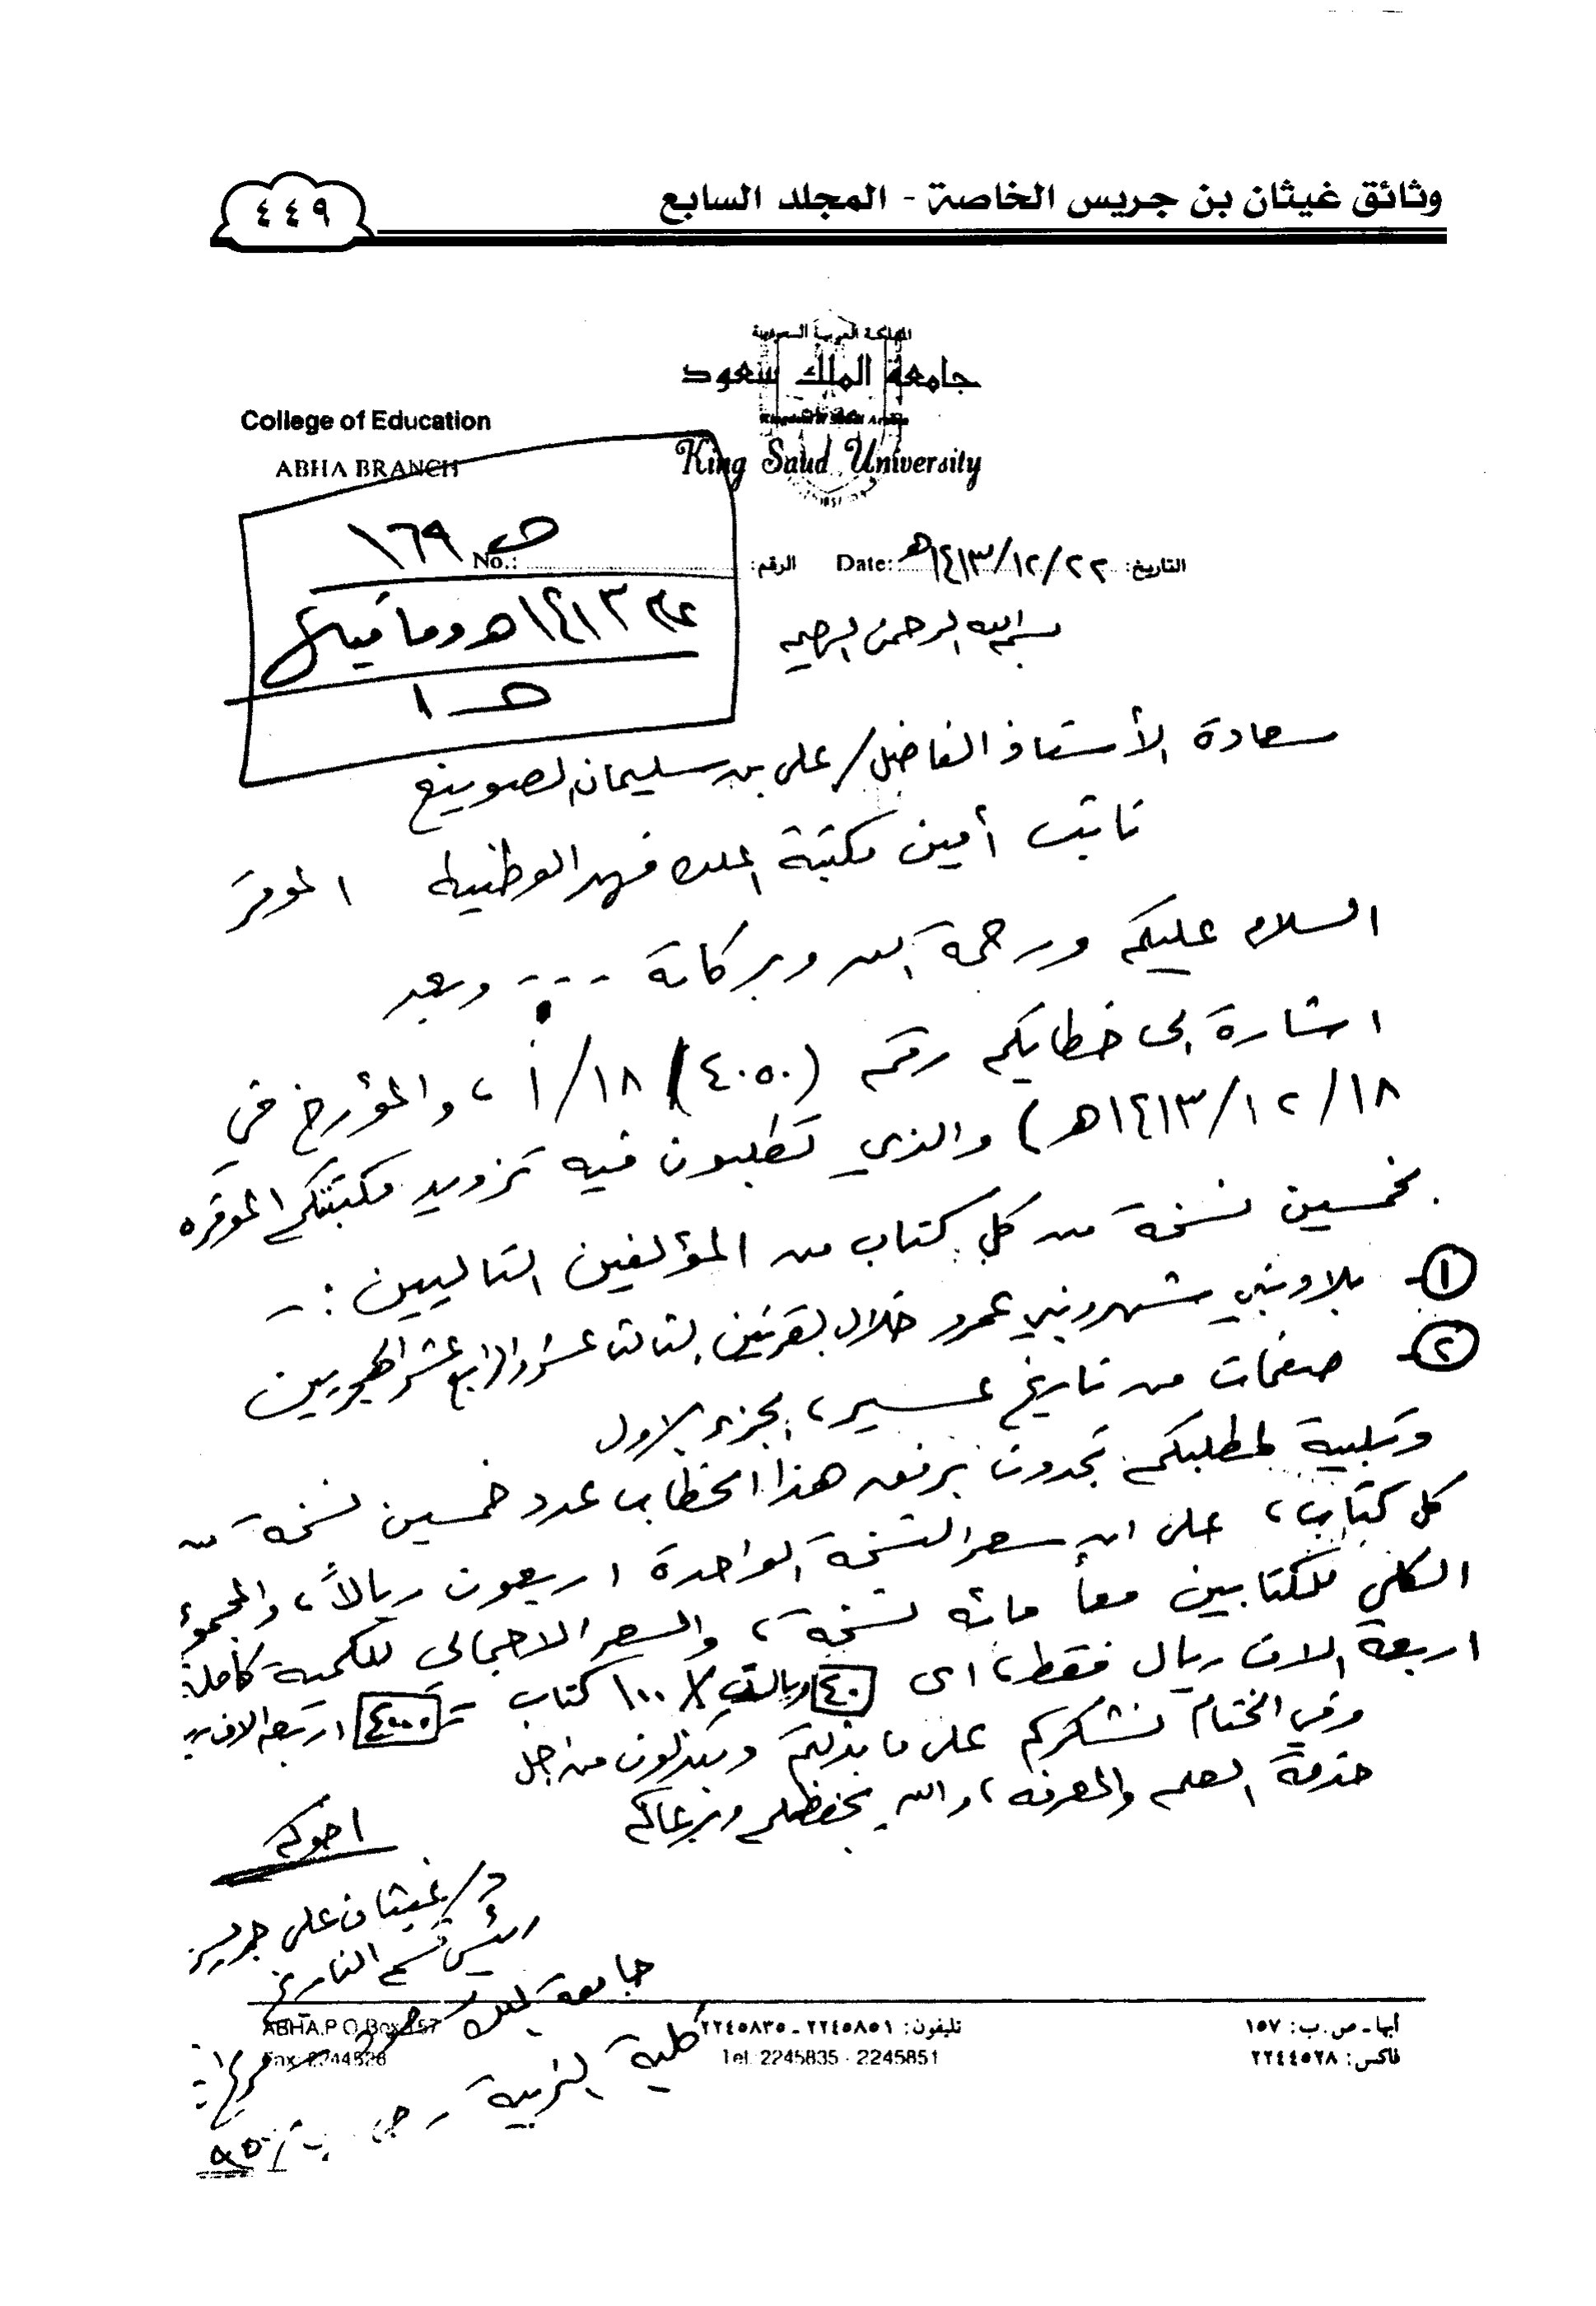 وثائق غيثان بن جريس الخاصة - المجلد السابع
٤٤٩
المملكة العربية السعودية
جامعة الملك سعود
King Saud University
College of Education
ABHA BRANCH
No.: الرقم:
ص ١٦٩
١٤١٣هـ وما قبلها
ص ١
التاريخ: ١٤١٣/١٢/٢٢هـ Date:
بسم الله الرحمن الرحيم
سعادة الأستاذ الفاضل/ علي بن سليمان الصوينع
نائب أمين مكتبة الملك فهد الوطنية الموقر
السلام عليكم ورحمة الله وبركاته ... وبعد
اشارة الى خطابكم رقم (٤٠٥٠) ١٨/أ، والمؤرخ في
١٤١٣/١٢/١٨هـ) والذي تطلبون فيه تزويد مكتبتكم الموقره
بخمسين نسخة من كل كتاب من المؤلفين التاليين :-
١- بلاد بني شهر وبني عمرو خلال القرنين الثالث عشر والرابع عشر الهجريين
٢- صفحات من تاريخ عسير، الجزء الاول
وتلبية لمطلبكم تجدون برفق هذا الخطاب عدد خمسين نسخة من
كل كتاب، على ان سعر النسخة الواحدة اربعون ريالاً، والمجموع
الكلي للكتابين معاً مائه نسخة، والسعر الاجمالي للكمية كاملة
اربعة الاف ريال فقط، اي ٤٠ ريال X ١٠٠ كتاب = ٤٠٠٠ اربعة الاف ريال
وفي الختام نشكركم على ما بذلتم وتبذلون من اجل
خدمة العلم والمعرفه، والله يحفظكم ويرعاكم
اخوكم
د/ غيثان علي جريس
رئيس قسم التاريخ
جامعة الملك سعود
كلية التربية - ص. ب/
أبها - ص.ب: ١٥٧
فاكس: ٢٢٤٤٥٢٨
تليفون: ٢٢٤٥٨٥١ - ٢٢٤٥٨٣٥
Tel. 2245835 - 2245851
ABHA, P.O.Box 157
Fax 2244528